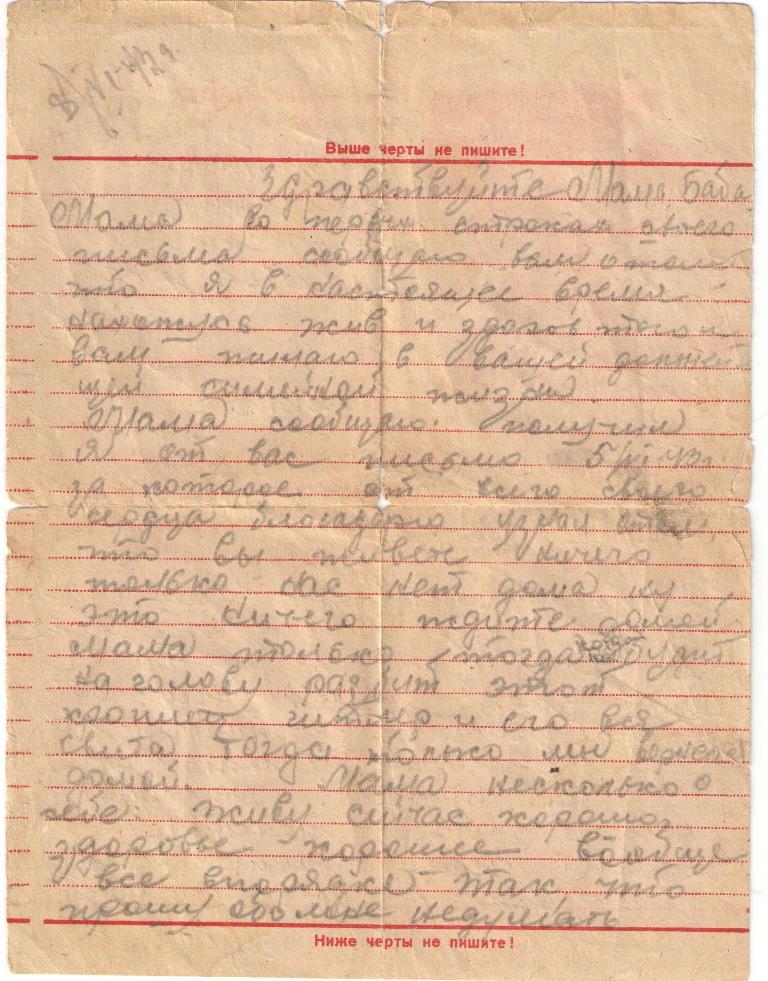 Выше черты не пишите!
Здравствуйте Мама, Баба
Мама во первых строках своего
письма сообщаю вам о том
что я в настоящее время
нахожусь жив и здоров того и
вам желаю в вашей
жизни.
Мама сообщаю. получил
я от вас письмо 5/VI-43г
за которое от всего своего
сердца благодарю узнал о том
что вы живете ничего
только нас нет дома ну
это ничего ждите домой
мама только тогда когда будит
на голову разбит этот
и его вся
свита тогда только мы вернемся
домой. Мама несколько о
себе. живу сичас хорошо,
здоровье хорошее вообще
все впорядке так что
прошу обо мне недумать
Ниже черты не пишите!